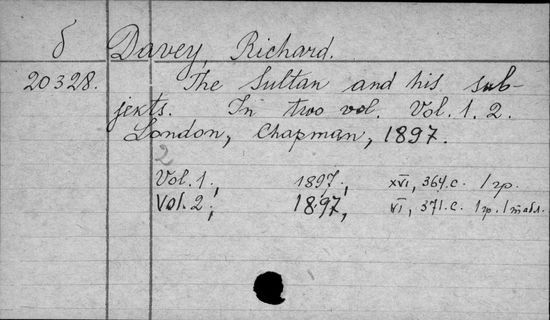 δ Davey, Richard.
20328. The Sultan and his sub-
jekts. In two vol. Vol. 1. 2.
London, Chapman, 1897.
2
Vol. 1., 1897, XVI, 364 с. 1 гр.
Vol. 2, 1897, VI, 371. с. 1 гр. 1 табл.